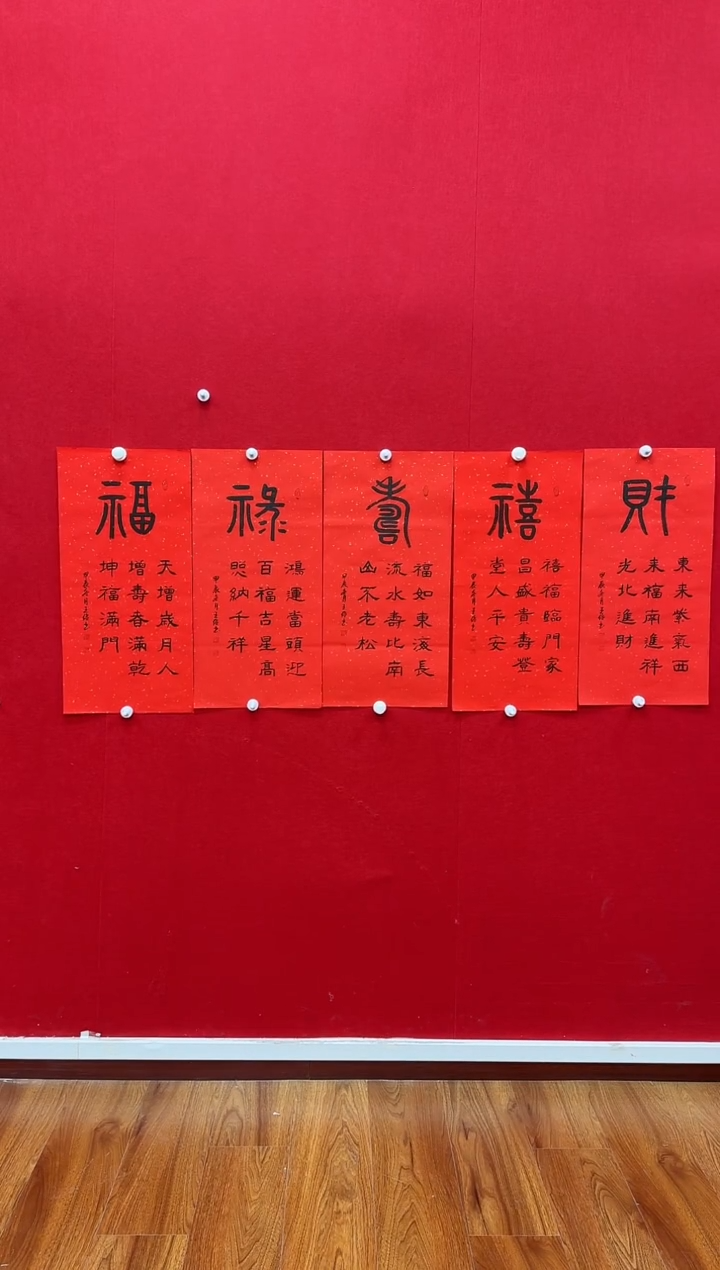 福
天增歲月人
增壽春滿乾
坤福滿門
祿
鴻運當頭迎
百福吉星高
照納千祥
壽
福如東海長
流水壽比南
山不老松
禧
禧福臨門家
昌盛貴壽登
堂人平安
財
東来紫氣西
来福南進祥
光北進財